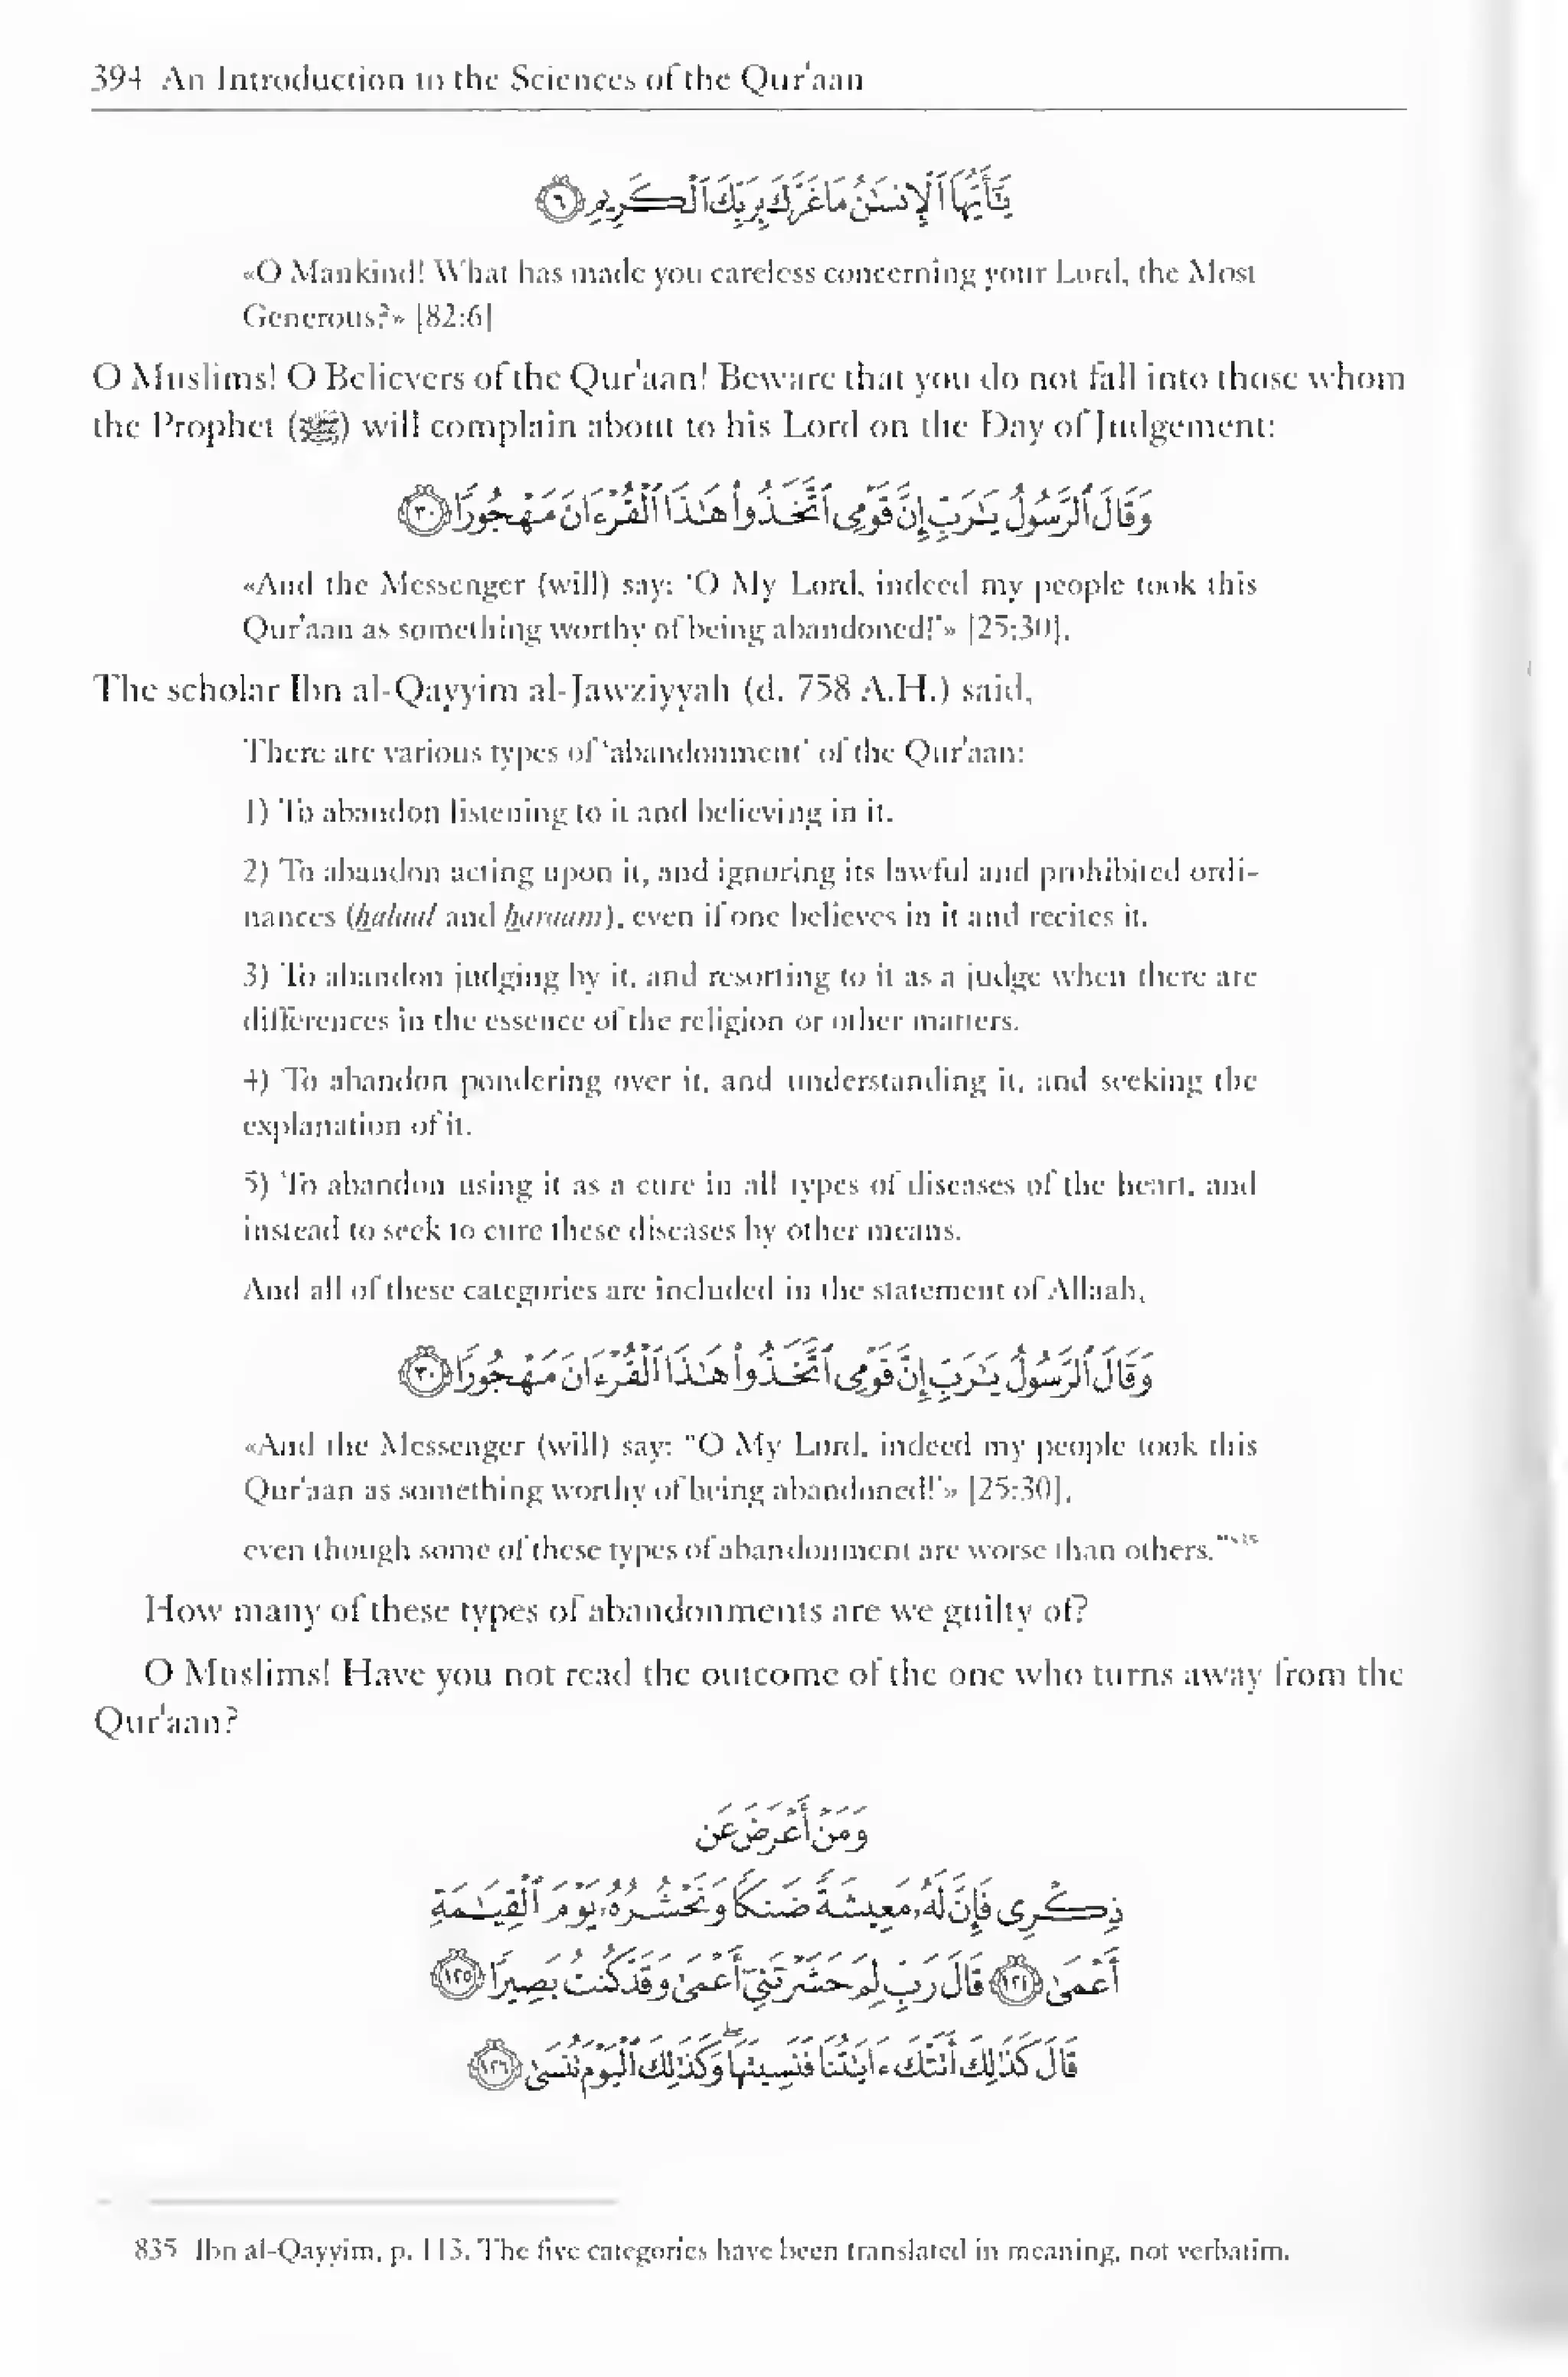 394 An Introduction to the Sciences of the Qur'aan
يَٰٓأَيُّهَا ٱلْإِنسَٰنُ مَا غَرَّكَ بِرَبِّكَ ٱلْكَرِيمِ ٦
«O Mankind! What has made you careless concerning your Lord, the Most
Generous?» [82:6]
O Muslims! O Believers of the Qur'aan! Beware that you do not fall into those whom
the Prophet (ﷺ) will complain about to his Lord on the Day of Judgement:
وَقَالَ ٱلرَّسُولُ يَٰرَبِّ إِنَّ قَوْمِى ٱتَّخَذُوا۟ هَٰذَا ٱلْقُرْءَانَ مَهْجُورًا ٣٠
«And the Messenger (will) say: 'O My Lord, indeed my people took this
Qur'aan as something worthy of being abandoned!'» [25:30].
The scholar Ibn al-Qayyim al-Jawziyyah (d. 758 A.H.) said,
There are various types of 'abandonment' of the Qur'aan:
1) To abandon listening to it and believing in it.
2) To abandon acting upon it, and ignoring its lawful and prohibited ordi-
nances (ḥalaal and ḥaraam), even if one believes in it and recites it.
3) To abandon judging by it, and resorting to it as a judge when there are
differences in the essence of the religion or other matters.
4) To abandon pondering over it, and understanding it, and seeking the
explanation of it.
5) To abandon using it as a cure in all types of diseases of the heart, and
instead to seek to cure these diseases by other means.
And all of these categories are included in the statement of Allaah,
وَقَالَ ٱلرَّسُولُ يَٰرَبِّ إِنَّ قَوْمِى ٱتَّخَذُوا۟ هَٰذَا ٱلْقُرْءَانَ مَهْجُورًا ٣٠
«And the Messenger (will) say: "O My Lord, indeed my people took this
Qur'aan as something worthy of being abandoned!'» [25:30],
even though some of these types of abandonment are worse than others."835
How many of these types of abandonments are we guilty of?
O Muslims! Have you not read the outcome of the one who turns away from the
Qur'aan?
وَمَنْ أَعْرَضَ عَن
ذِكْرِى فَإِنَّ لَهُۥ مَعِيشَةً ضَنكًا وَنَحْشُرُهُۥ يَوْمَ ٱلْقِيَٰمَةِ
أَعْمَىٰ ١٢٤ قَالَ رَبِّ لِمَ حَشَرْتَنِىٓ أَعْمَىٰ وَقَدْ كُنتُ بَصِيرًا ١٢٥
قَالَ كَذَٰلِكَ أَتَتْكَ ءَايَٰتُنَا فَنَسِيتَهَا ۖ وَكَذَٰلِكَ ٱلْيَوْمَ تُنسَىٰ ١٢٦
835 Ibn al-Qayyim, p. 113. The five categories have been translated in meaning, not verbatim.